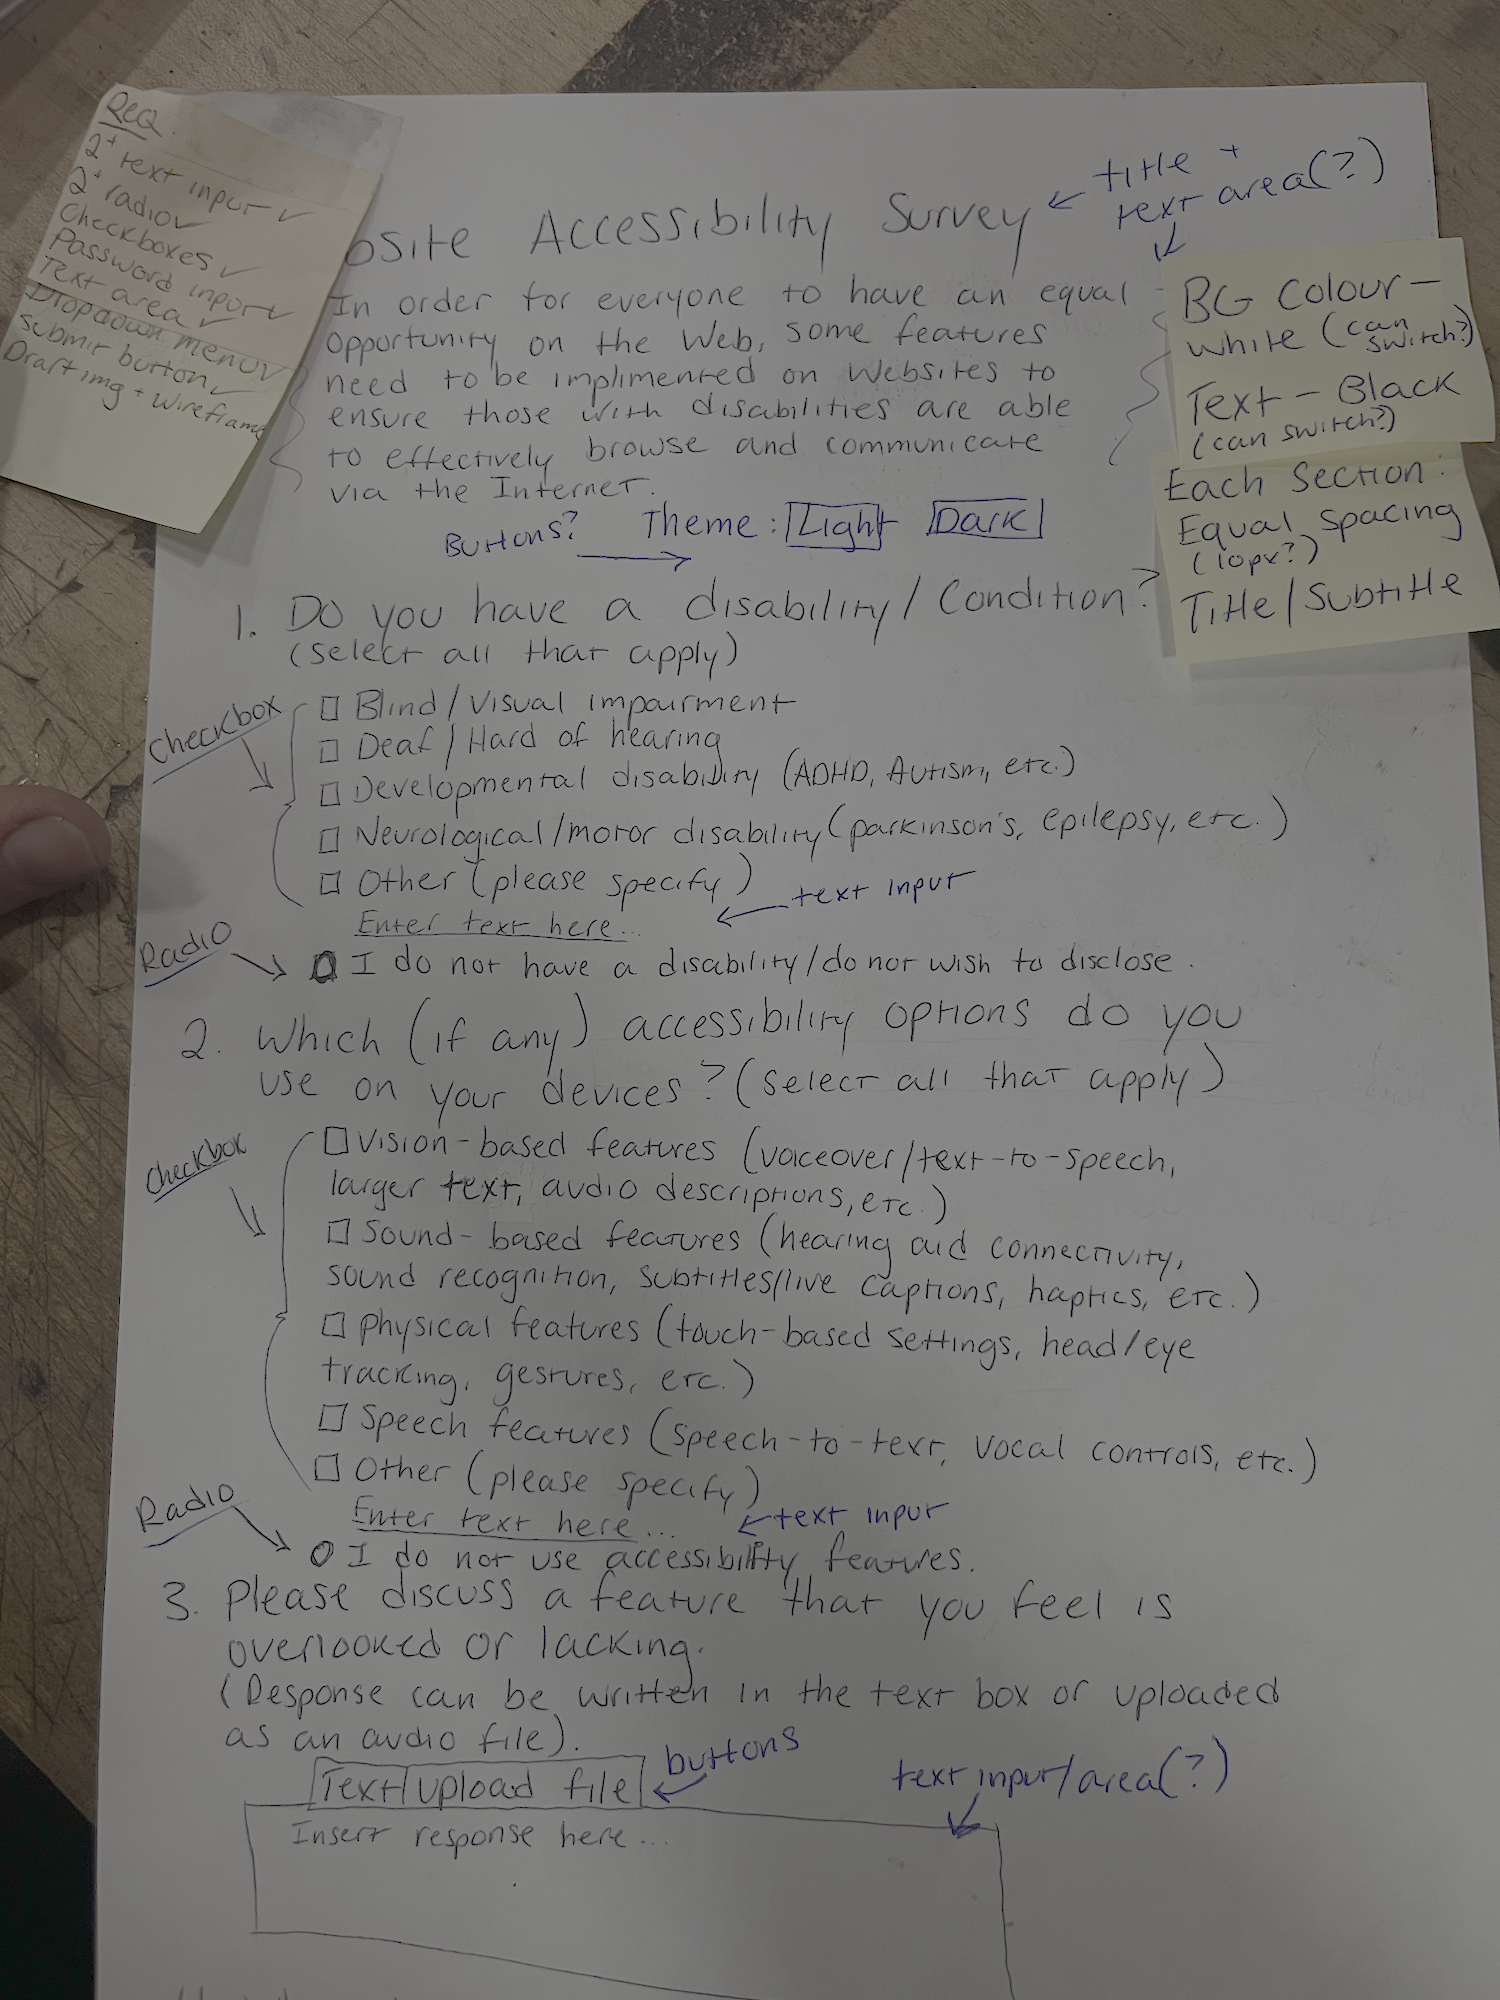 REQ.
2+ text input ✓
2+ radio ✓
Checkboxes ✓
Password input ✓
Text area ✓
Dropdown menu ✓
submit button ✓
Draft img + wireframe
title +
text area(?)
bsite Accessibility Survey
BG Colour -
white (can switch?)
Text - Black
(can switch?)
Each Section:
Equal spacing
(10px?)
Title/Subtitle
In order for everyone to have an equal
opportunity on the Web, some features
need to be implimented on websites to
ensure those with disabilities are able
to effectively browse and communicate
via the Internet.
Buttons? Theme: Light Dark
1. Do you have a disability/Condition?
(select all that apply)
Checkbox
□ Blind/Visual impairment
□ Deaf/Hard of hearing
□ Developmental disability (ADHD, Autism, etc.)
□ Neurological/motor disability (parkinson's, epilepsy, etc.)
□ Other (please specify)
Enter text here... text input
Radio
O I do not have a disability/do not wish to disclose.
2. Which (if any) accessibility options do you
use on your devices? (select all that apply)
Checkbox
□ Vision-based features (voiceover/text-to-speech,
larger text, audio descriptions, etc.)
□ Sound-based features (hearing aid connectivity,
sound recognition, subtitles/live captions, haptics, etc.)
□ physical features (touch-based settings, head/eye
tracking, gestures, etc.)
□ Speech features (speech-to-text, vocal controls, etc.)
□ Other (please specify)
Enter text here... text input
Radio
O I do not use accessibility features.
3. Please discuss a feature that you feel is
overlooked or lacking.
(Response can be written in the text box or uploaded
as an audio file).
Text Upload file buttons
text input/area(?)
Insert response here...